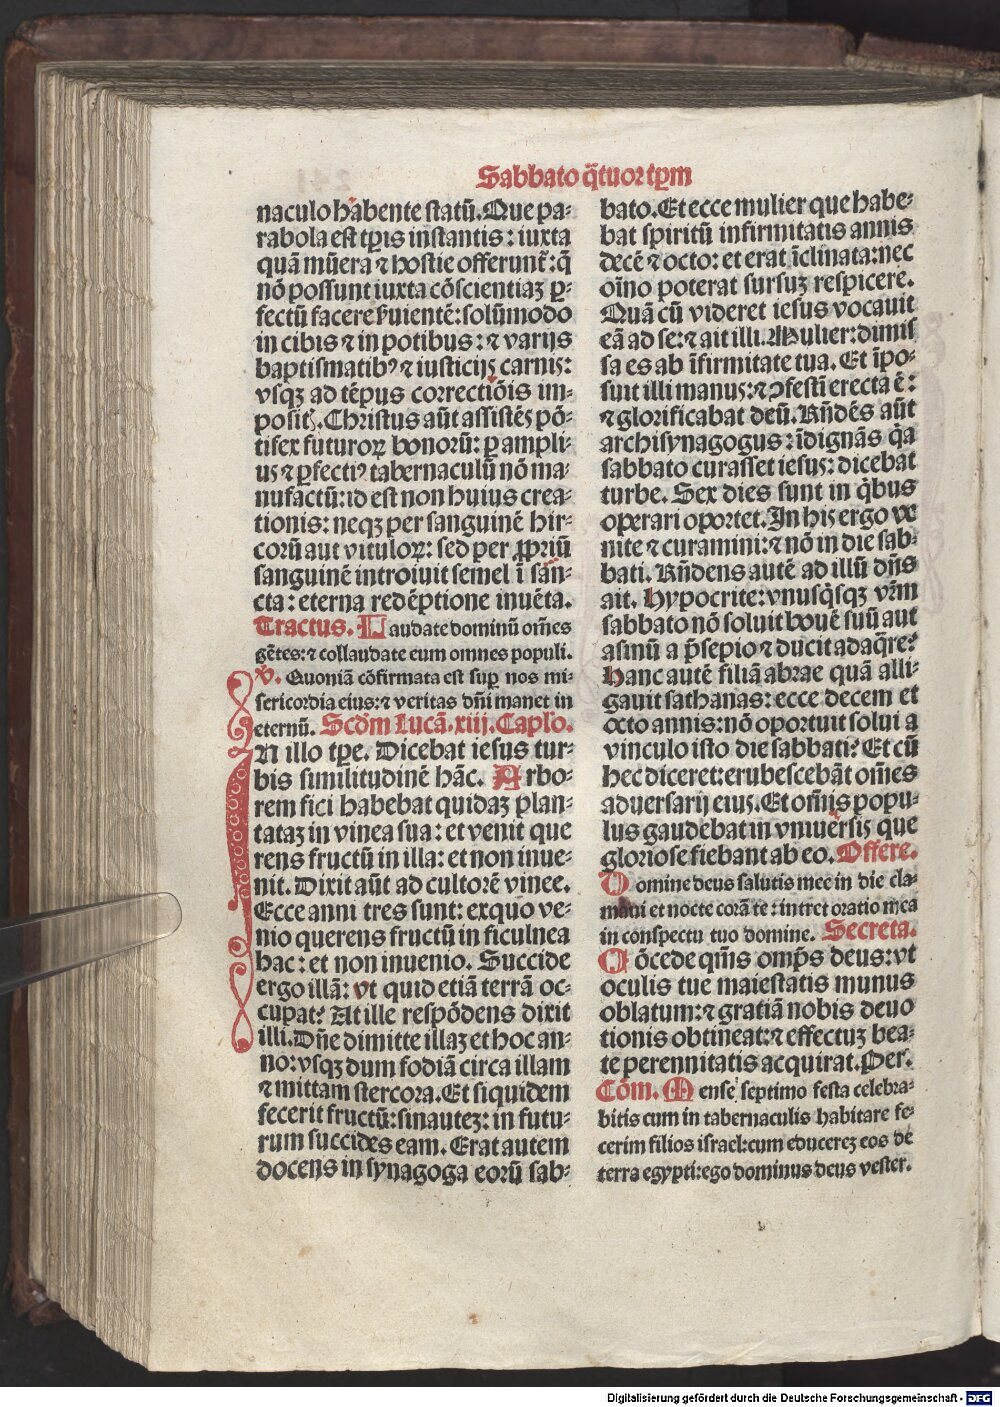 Sabbato q̄tuor tp̄m
naculo habente statū. Que pa⸗
rabola est tp̄is instantis: iuxta
quā mūera ⁊ hostie offerunt̄: q̄
nō possunt iuxta cōscientiaꝫ ꝑ⸗
fectū facere ẜuientē: solūmodo
in cibis ⁊ in potibus: ⁊ varijs
baptismatibꝰ ⁊ iusticijs carnis:
vsqꝫ ad tēpus correctiōis im⸗
positꝭ. Christus aūt assistēs pō⸗
tifex futuroꝝ bonorū: ꝑ ampli⸗
us ⁊ ꝑfectiꝰ tabernaculū nō ma⸗
nufactū: id est non huius crea⸗
tionis: neqꝫ per sanguinē hir⸗
corū aut vituloꝝ: sed per ꝓpriū
sanguinē introiuit semel ī san⸗
cta: eterna redēptione inuēta.
Tractus. Laudate dominū om̄es
gētes: ⁊ collaudate eum omnes populi.
℣. Quoniā cōfirmata est suꝑ nos mi⸗
sericordia eius: ⁊ veritas dn̄i manet in
eternū. Scd̄m Lucā. xiij. Caplo.
IN illo tp̄e. Dicebat iesus tur⸗
bis similitudinē hāc. Arbo⸗
rem fici habebat quidaꝫ plan⸗
tataꝫ in vinea sua: et venit que
rens fructū in illa: et non inue⸗
nit. Dixit aūt ad cultorē vinee.
Ecce anni tres sunt: exquo ve⸗
nio querens fructū in ficulnea
hac: et non inuenio. Succide
ergo illā: vt quid etiā terrā oc⸗
cupat? At ille respōdens dixit
illi. Dn̄e dimitte illaꝫ et hoc an⸗
no: vsqꝫ dum fodiā circa illam
⁊ mittam stercora. Et siquidem
fecerit fructū: sinauteꝫ: in futu⸗
rum succides eam. Erat autem
docens in synagoga eorū sab⸗
bato. Et ecce mulier que habe⸗
bat spiritū infirmitatis annis
decē ⁊ octo: et erat īclinata: nec
oīno poterat sursuꝫ respicere.
Quā cū videret iesus vocauit
eā ad se: ⁊ ait illi. Mulier: dimis
sa es ab īfirmitate tua. Et īpo⸗
suit illi manus: ⁊ ꝯfestī erecta ē:
⁊ glorificabat deū. Rn̄dēs aūt
archisynagogus: īdignās q̄a
sabbato curasset iesus: dicebat
turbe. Sex dies sunt in q̇bus
operari oportet. In his ergo ve
nite ⁊ curamini: ⁊ nō in die sab⸗
bati. Rn̄dens autē ad illū dn̄s
ait. Hypocrite: vnusq̇sqꝫ vr̄m
sabbato nō soluit bouē suū aut
asinū a p̄sepio ⁊ ducit adaq̄re?
Hanc autē filiā abrae quā alli⸗
gauit sathanas: ecce decem et
octo annis: nō oportuit solui a
vinculo isto die sabbati? Et cū
hec diceret: erubescebāt om̄es
aduersarij eius. Et om̄is popu⸗
lus gaudebat in vniuersis que
gloriose fiebant ab eo. Offere.
Domine deus salutis mee in die cla⸗
maui et nocte corā te: intret oratio mea
in conspectu tuo domine. Secreta.
Cōcede qm̄s omp̄s deus: vt
oculis tue maiestatis munus
oblatum: ⁊ gratiā nobis deuo
tionis obtineat: ⁊ effectuꝫ bea⸗
te perennitatis acquirat. Per.
Cōm. Mense septimo festa celebra⸗
bitis cum in tabernaculis habitare fe⸗
cerim filios israel: cum educereꝫ eos de
terra egypti: ego dominus deus vester.
Digitalisierung gefördert durch die Deutsche Forschungsgemeinschaft - DFG